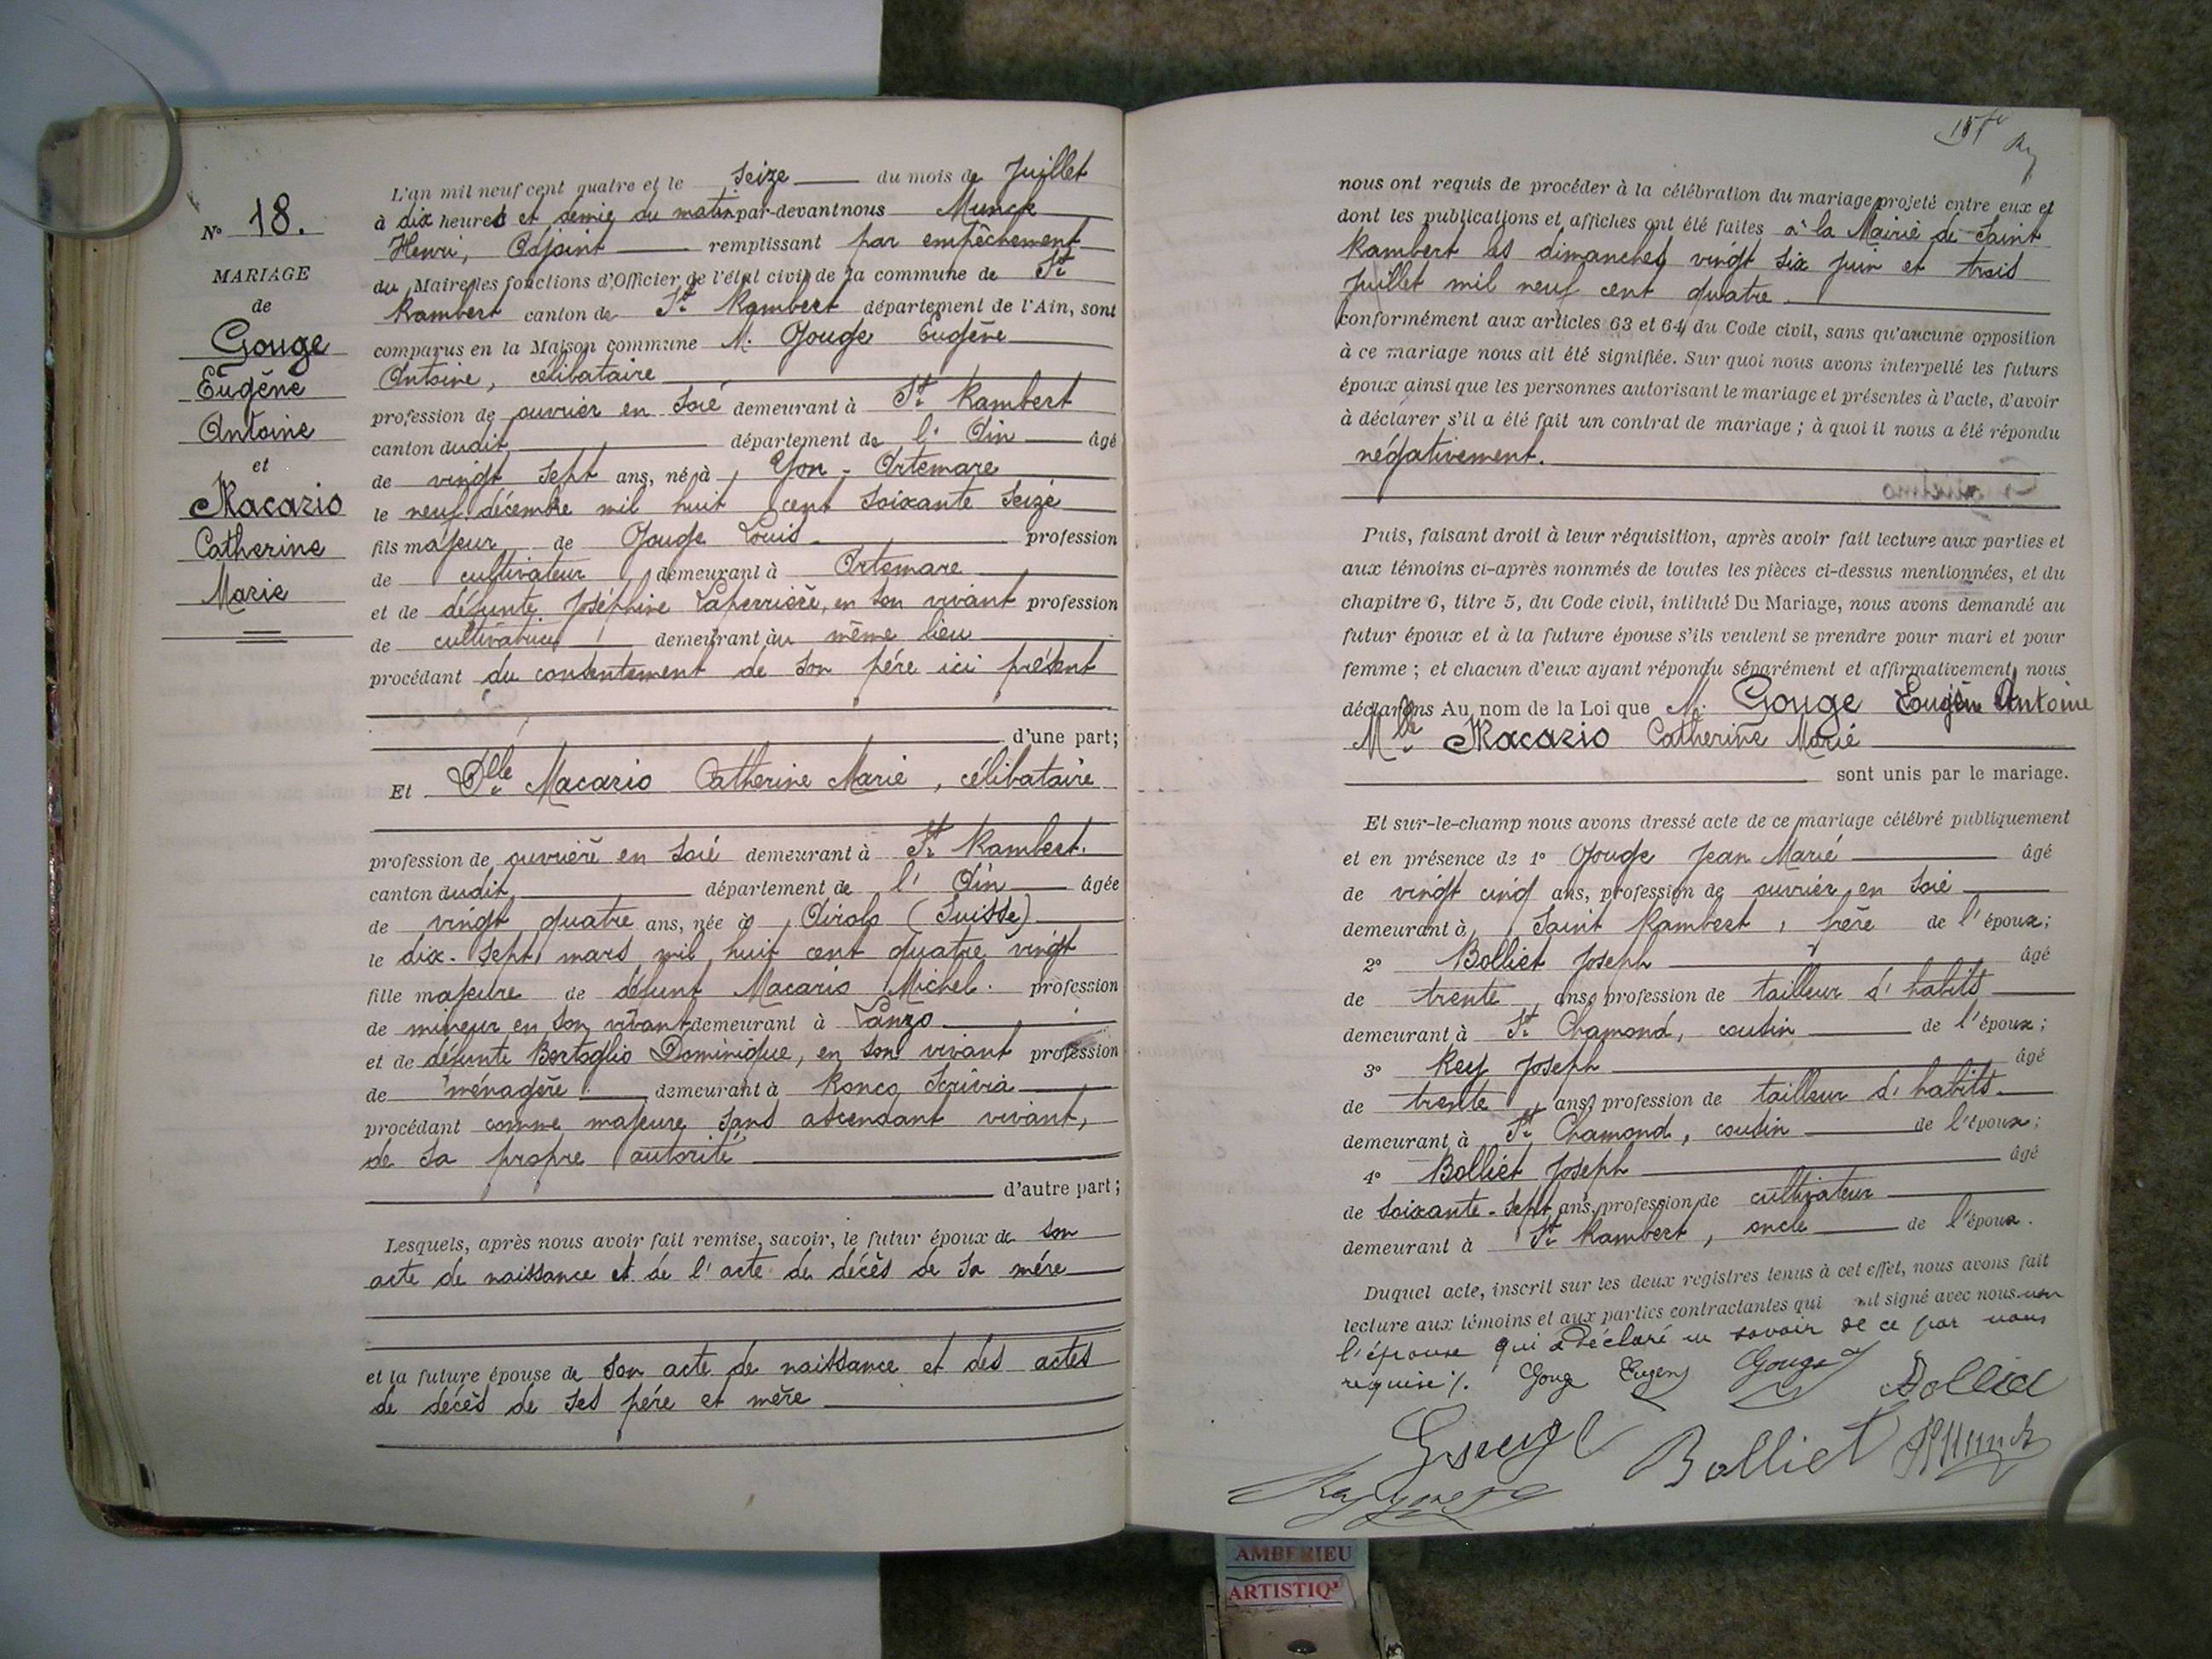 N° 18.
MARIAGE
de
Gouge
Eugène
Antoine
et
Macario
Catherine
Marie
L'an mil neuf cent quatre et le seize du mois de Juillet
à dix heures et demie du matin par-devant nous Munck
Henri, Adjoint remplissant par empêchement
du Maire les fonctions d'Officier de l'état civil de la commune de St
Rambert canton de St Rambert département de l'Ain, sont
comparus en la Maison commune M. Gouge Eugène
Antoine, célibataire
profession de ouvrier en soie demeurant à St Rambert
canton dudit département de l'Ain âgé
de vingt sept ans, né à Yon-Artemare
le neuf décembre mil huit cent soixante seize
fils majeur de Gouge Louis profession
de cultivateur demeurant à Artemare
et de défunte Joséphine Laperrière, en son vivant profession
de cultivatrice demeurant au même lieu
procédant du consentement de son père ici présent
d'une part;
Et Dlle Macario Catherine Marie, célibataire
profession de ouvrière en soie demeurant à St Rambert.
canton dudit département de l'Ain âgée
de vingt quatre ans, née à Airolo (Suisse)
le dix-sept mars mil huit cent quatre vingt
fille majeure de défunt Macario Michel. profession
de mineur en son vivant demeurant à Lanzo
et de défunte Bertoglio Dominique, en son vivant profession
de ménagère demeurant à Ronco Scrivia
procédant comme majeure sans ascendant vivant,
de sa propre autorité
d'autre part;
Lesquels, après nous avoir fait remise, savoir, le futur époux de son
acte de naissance et de l'acte de décès de sa mère
et la future épouse de son acte de naissance et des actes
de décès de ses père et mère
nous ont requis de procéder à la célébration du mariage projeté entre eux et
dont les publications et affiches ont été faites à la Mairie de Saint
Rambert les dimanches vingt six juin et trois
Juillet mil neuf cent quatre
conformément aux articles 63 et 64 du Code civil, sans qu'aucune opposition
à ce mariage nous ait été signifiée. Sur quoi nous avons interpellé les futurs
époux ainsi que les personnes autorisant le mariage et présentes à l'acte, d'avoir
à déclarer s'il a été fait un contrat de mariage ; à quoi il nous a été répondu
négativement.
Puis, faisant droit à leur réquisition, après avoir fait lecture aux parties et
aux témoins ci-après nommés de toutes les pièces ci-dessus mentionnées, et du
chapitre 6, titre 5, du Code civil, intitulé Du Mariage, nous avons demandé au
futur époux et à la future épouse s'ils veulent se prendre pour mari et pour
femme ; et chacun d'eux ayant répondu séparément et affirmativement, nous
déclarons Au nom de la Loi que M. Gouge Eugèn Antoine
Mlle Macario Catherine Marie
sont unis par le mariage.
Et sur-le-champ nous avons dressé acte de ce mariage célébré publiquement
et en présence de 1° Gouge Jean Marie âgé
de vingt cinq ans, profession de ouvrier en soie
demeurant à Saint Rambert, frère de l'époux;
2° Bolliet Joseph âgé
de trente ans, profession de tailleur d'habits
demeurant à St Chamond, cousin de l'époux;
3° Rey Joseph âgé
de trente ans, profession de tailleur d'habits
demeurant à St Chamond, cousin de l'époux;
4° Bolliet Joseph âgé
de soixante-sept ans, profession de cultivateur
demeurant à St Rambert, oncle de l'époux.
Duquel acte, inscrit sur les deux registres tenus à cet effet, nous avons fait
lecture aux témoins et aux parties contractantes qui ont signé avec nous non
l'épouse qui a déclaré ne savoir de ce par nous
requise %. Goug Eugen Gouge Bolliet
Gouge Bolliet HMunck
AMBERIEU
ARTISTIQ'